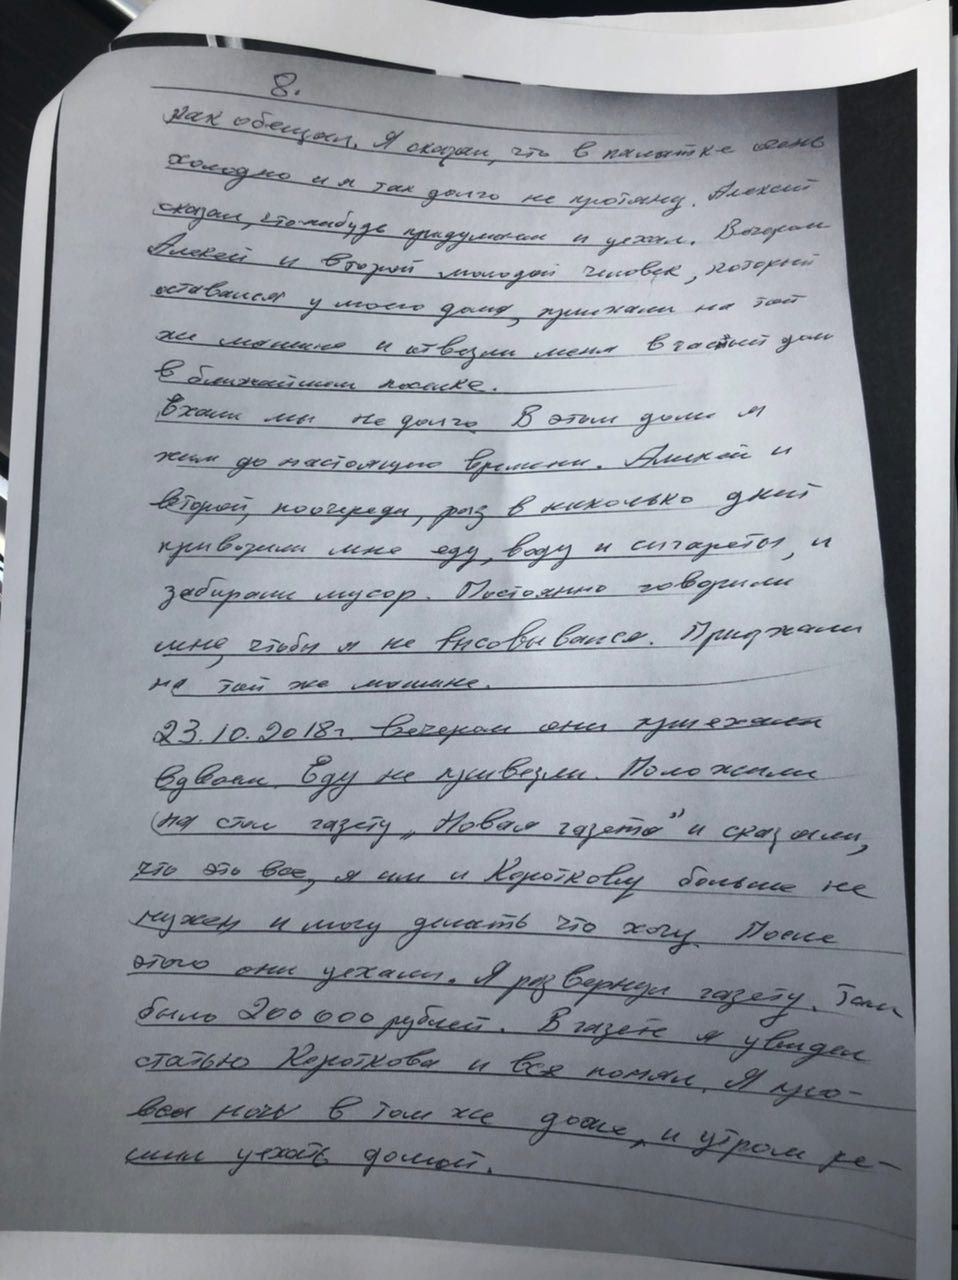 8.
как обещал. Я сказал, что в палатке очень
холодно и я так долго не протяну. Алексей
сказал, что-нибудь придумаем и уехал. Вечером
Алексей и второй молодой человек, который
оставался у моего дома, приехали на той
же машине и отвезли меня в частный дом
в ближайшем поселке.
Ехали мы не долго В этом доме я
жил до настоящего времени. Алексей и
второй, поочереди, раз в несколько дней
привозили мне еду, воду и сигареты, и
забирали мусор. Постоянно говорили
мне, чтобы я не высовывался. Приезжали
на той же машине.
23.10.2018г. вечером они приехали
вдвоем. Еду не привезли. Положили
на стол газету „Новая газета" и сказали,
что это все, я им и Короткову больше не
нужен и могу делать что хочу. После
этого они уехали. Я развернул газету. Там
было 200 000 рублей. В газете я увидел
статью Короткова и все понял. Я про-
вел ночь в том же доме, и утром ре-
шил уехать домой.